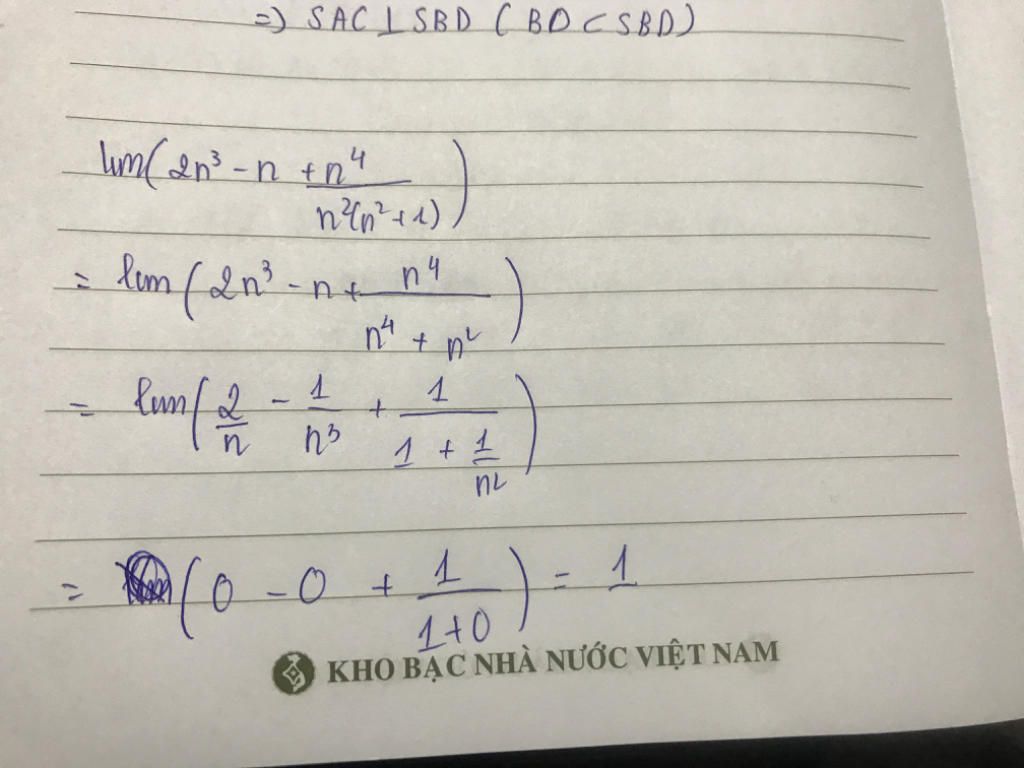 =) SAC ⊥ SBD ( BD ⊂ SBD)
lim( 2n³ - n + n⁴ / n²(n² + 1) )
= lim ( 2n³ - n + n⁴ / n⁴ + n² )
= lim ( 2/n - 1/n³ + 1 / 1 + 1/n² )
= ( 0 - 0 + 1 / 1+0 ) = 1
KHO BẠC NHÀ NƯỚC VIỆT NAM